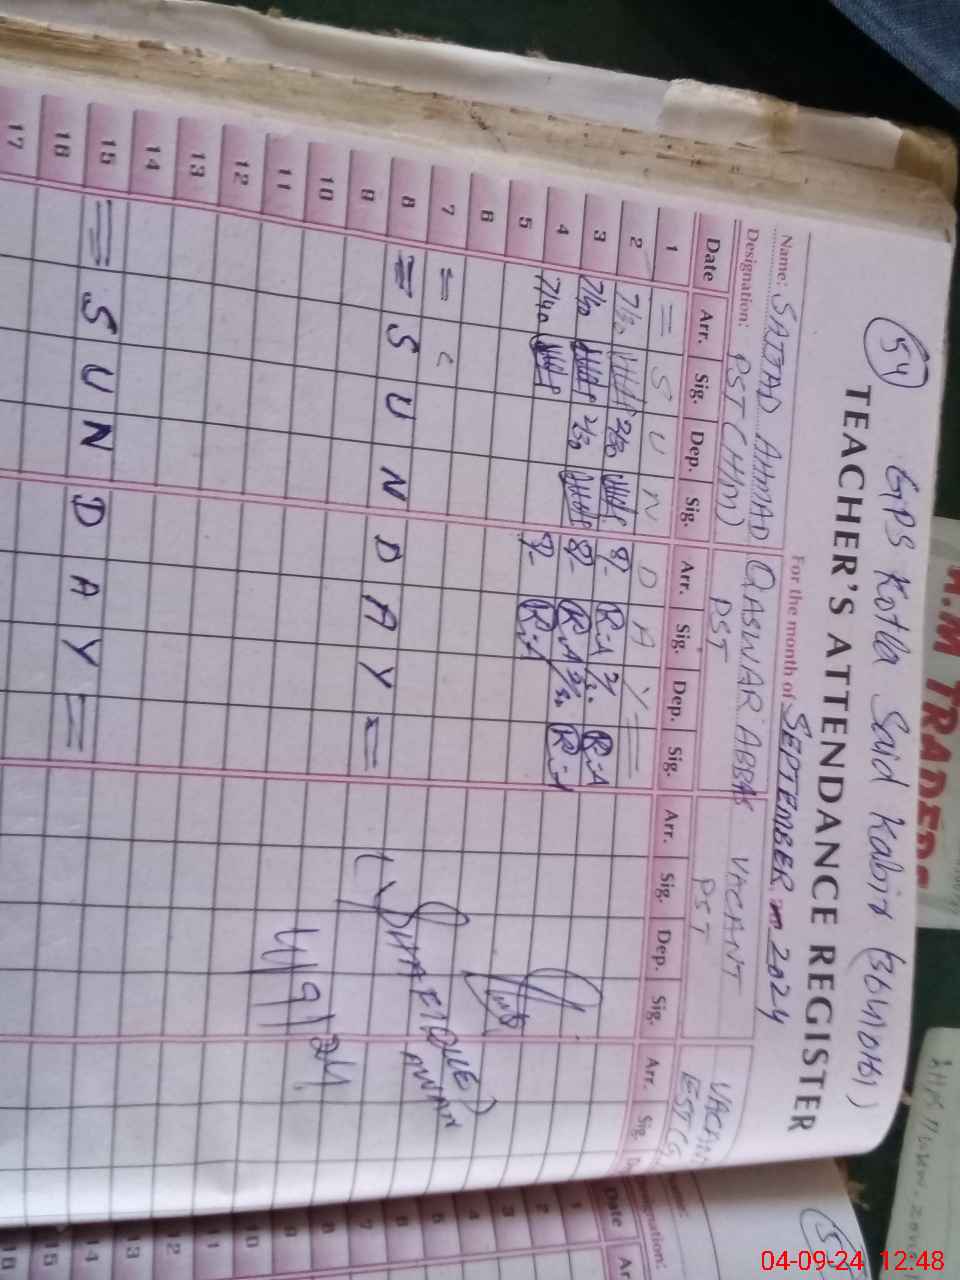 54
GPS Kotla Said Kabir (36410161)
TEACHER'S ATTENDANCE REGISTER
For the month of SEPTEMBER 2024
Name: SAJJAD AHMAD QASWAR ABBAS VACANT VACANT
Designation: PST (HM) PST PST
Date Arr. Sig. Dep. Sig. Arr. Sig. Dep. Sig. Arr. Sig. Dep. Sig. Arr. Sig.
1 = S U N D A Y =
2 7/30 2/30 8/-
3 7/40 2/30 8/-
4 7/40 8/-
5
6
7 =
8 = S U N D A Y =
9
10
11
12
13
14
15 = S U N D A Y =
16
17
SHAFIQUE
AWAN
4/9/24
Date Arr.
Designation:
1
2
3
4
5
6
7
8
9
10
11
12
13
14
15
16
M TRADERS
04-09-24 12:48